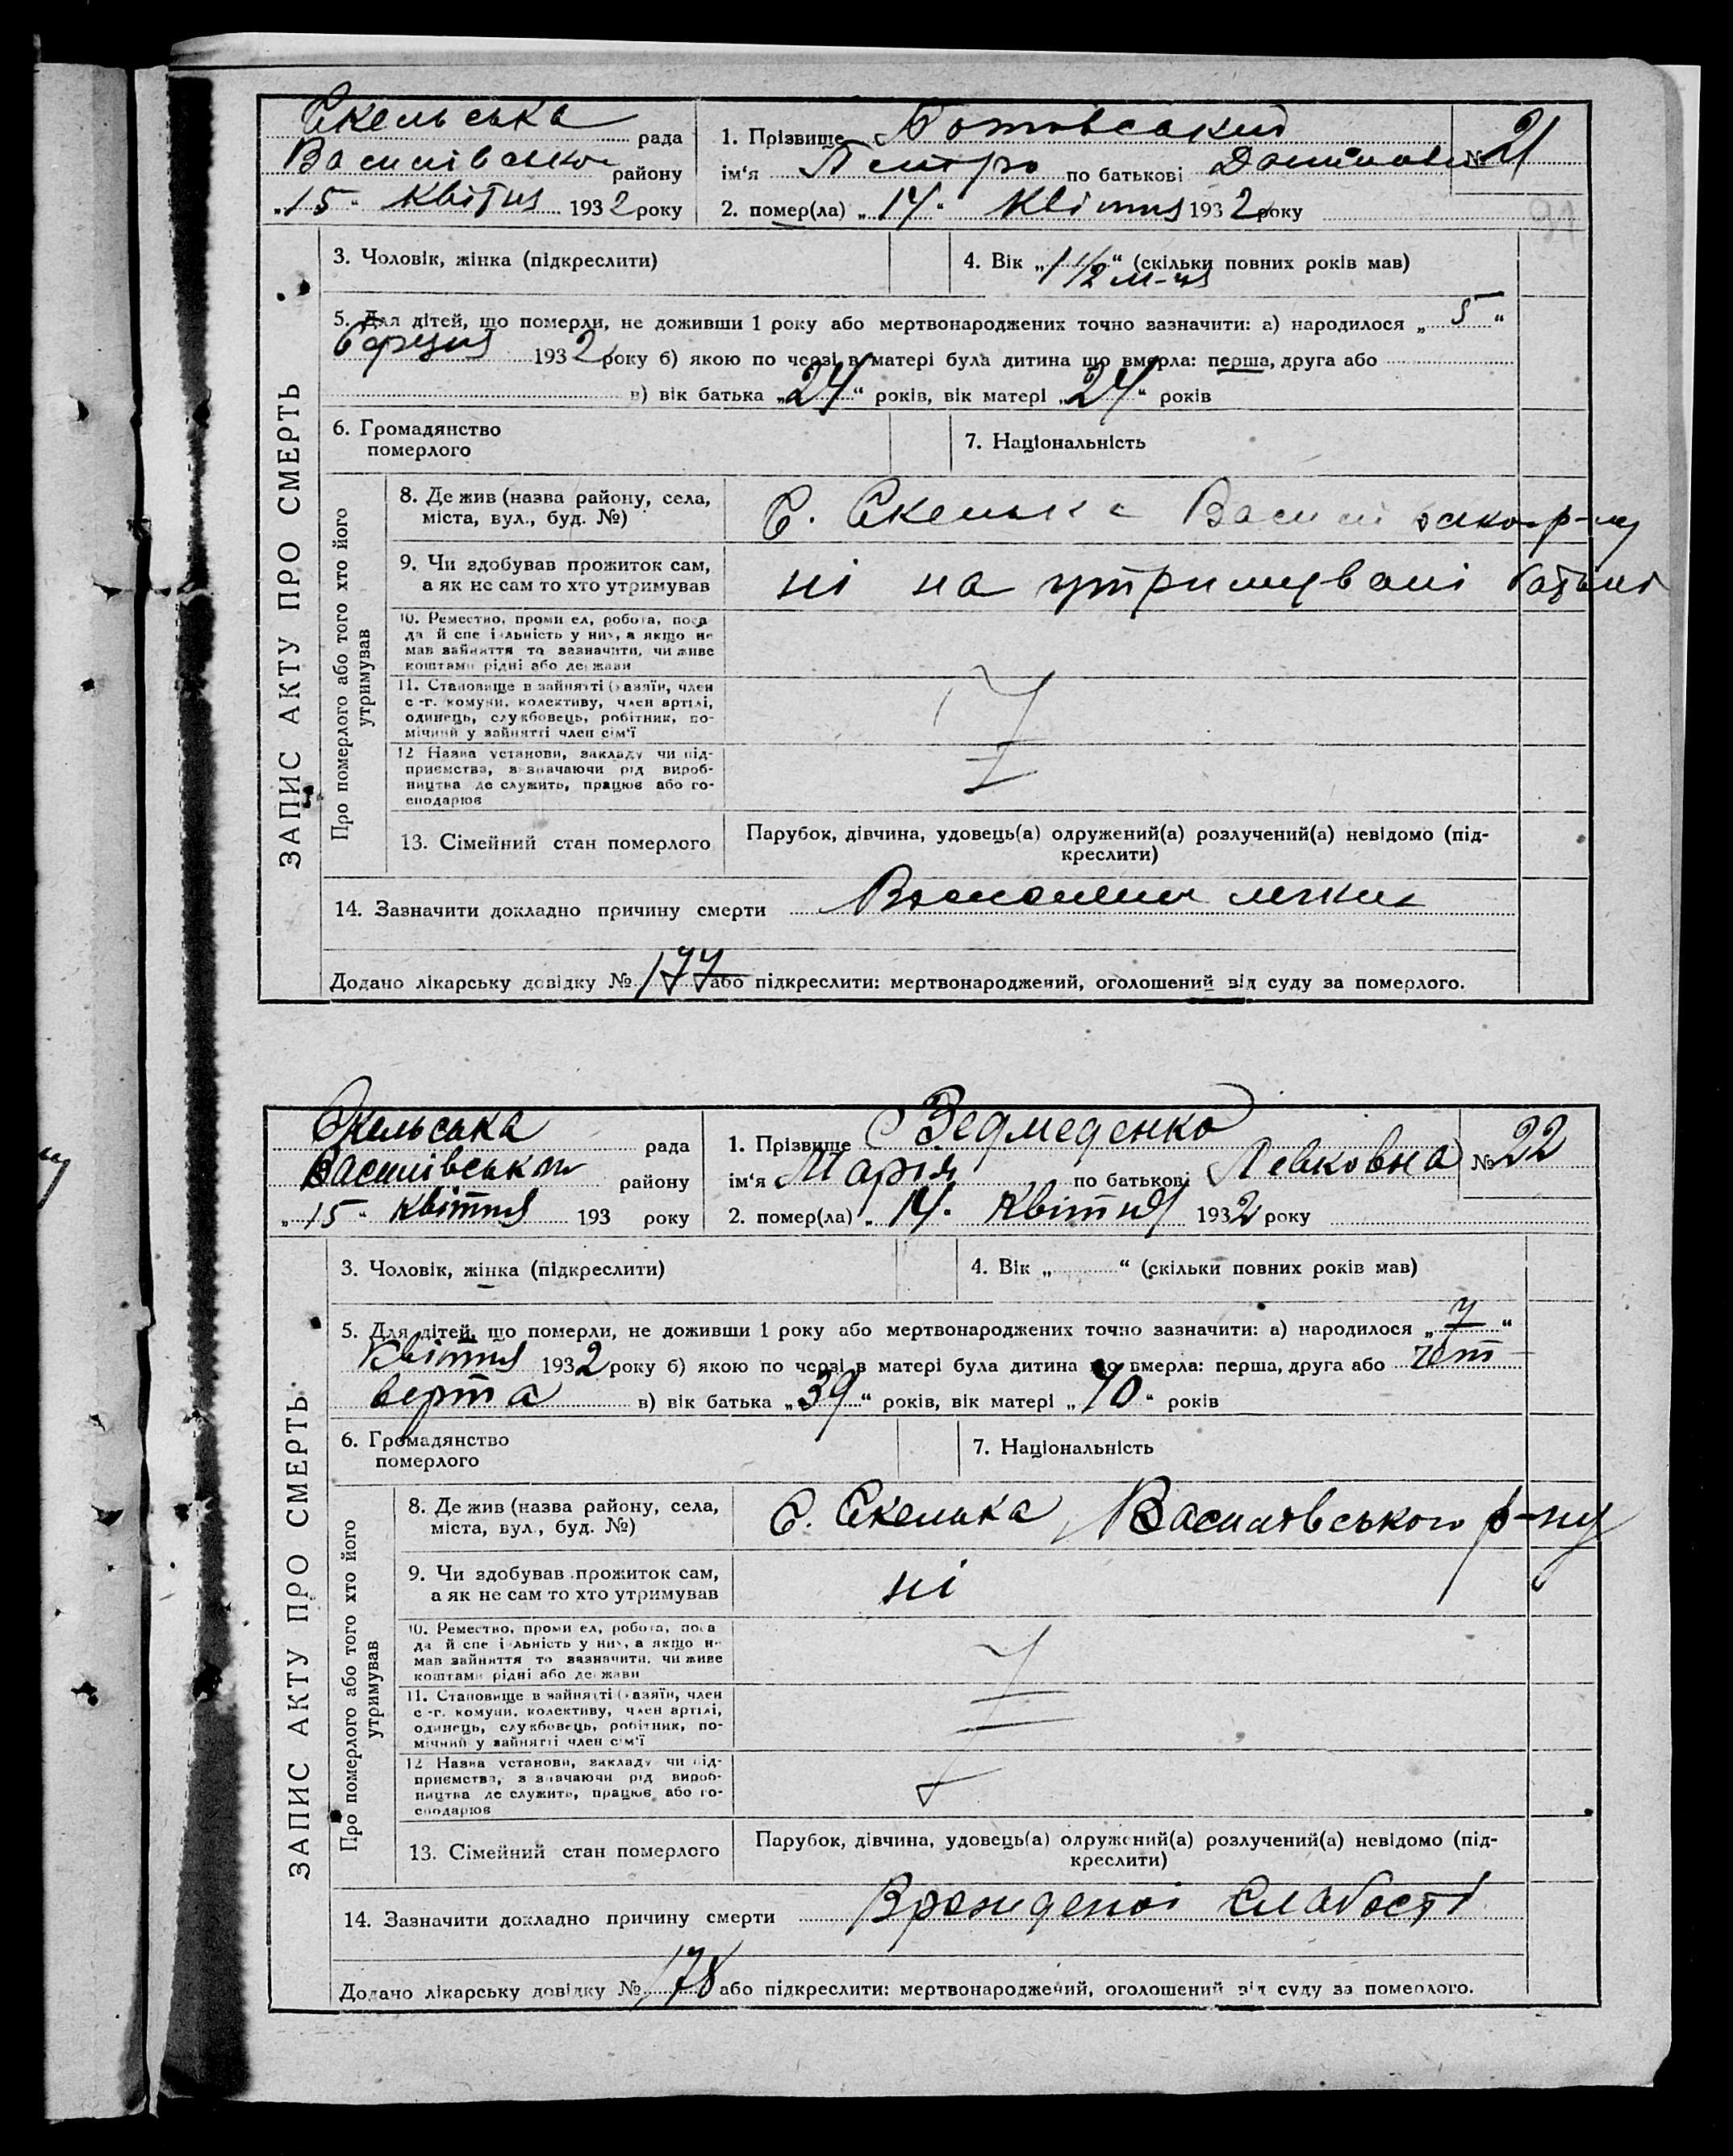 Скельська рада
Василівського району
„15“ Квітня 1932 року
1. Прізвище
ім‘я Петро по батькові № 21
2. помер(ла) „14“ Квітня 1932 року
91
ЗАПИС АКТУ ПРО СМЕРТЬ
3. Чоловік, жінка (підкреслити)
4. Вік „1 1/2 м-ця“ (скільки повних років мав)
5. Для дітей, що померли, не доживши 1 року або мертвонароджених точно зазначити: а) народилося „5“
березня 1932 року б) якою по черзі в матері була дитина що вмерла: перша, друга або
в) вік батька „24“ років, вік матері „24“ років
6. Громадянство
померлого
7. Національність
Про померлого або того хто його
утримував
8. Де жив (назва району, села,
міста, вул., буд. №)
С. Скелька Василівсько р-ну
9. Чи здобував прожиток сам,
а як не сам то хто утримував
ні на утримувані батька
10. Ремество, промисел, робота, поса
да й спеціальність у них, а якщо не
мав зайняття то зазначити, чи живе
коштами рідні або держави
11. Становище в зайнятті (хазяїн, член
с.-г. комуни, колективу, член артілі,
одинець, службовець, робітник, по-
мічний у зайнятті член сім‘ї
12 Назва установи, закладу чи під-
приємства, зазначаючи рід вироб-
ництва де служить, працює або го-
сподарює
13. Сімейний стан померлого
Парубок, дівчина, удовець(а) одружений(а) розлучений(а) невідомо (під-
креслити)
14. Зазначити докладно причину смерти
Додано лікарську довідку № 177 або підкреслити: мертвонароджений, оголошений від суду за померлого.
Скельська рада
Василівського району
„15“ Квітня 193 року
1. Прізвище Ведмеденко
ім‘я Марія по батькові Левковна № 22
2. помер(ла) „14“ Квітня 1932 року
ЗАПИС АКТУ ПРО СМЕРТЬ
3. Чоловік, жінка (підкреслити)
4. Вік „ “ (скільки повних років мав)
5. Для дітей, що померли, не доживши 1 року або мертвонароджених точно зазначити: а) народилося „7“
Квітня 1932 року б) якою по черзі в матері була дитина що вмерла: перша, друга або чет
верта в) вік батька „39“ років, вік матері „40“ років
6. Громадянство
померлого
7. Національність
Про померлого або того хто його
утримував
8. Де жив (назва району, села,
міста, вул., буд. №)
С. Скелька Василівського р-ну
9. Чи здобував прожиток сам,
а як не сам то хто утримував
ні
10. Ремество, промисел, робота, поса
да й спеціальність у них, а якщо не
мав зайняття то зазначити, чи живе
коштами рідні або держави
11. Становище в зайнятті (хазяїн, член
с.-г. комуни, колективу, член артілі,
одинець, службовець, робітник, по-
мічний у зайнятті член сім‘ї
12 Назва установи, закладу чи під-
приємства, зазначаючи рід вироб-
ництва де служить, працює або го-
сподарює
13. Сімейний стан померлого
Парубок, дівчина, удовець(а) одружений(а) розлучений(а) невідомо (під-
креслити)
14. Зазначити докладно причину смерти Врожденої слабості
Додано лікарську довідку № 178 або підкреслити: мертвонароджений, оголошений від суду за померлого.